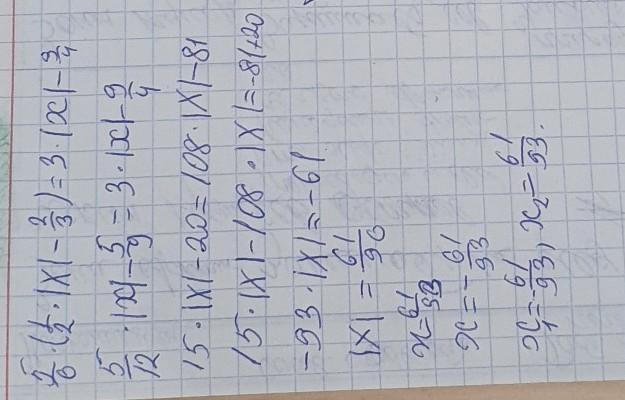 5/6 · (1/2 · |x| - 2/3) = 3 · |x| - 9/4
5/12 · |x| - 5/9 = 3 · |x| - 9/4
15 · |x| - 20 = 108 · |x| - 81
15 · |x| - 108 · |x| = -81 + 20
-93 · |x| = -61
|x| = 61/90
x = 61/93
x = - 61/93
x₁ = - 61/93, x₂ = 61/93.